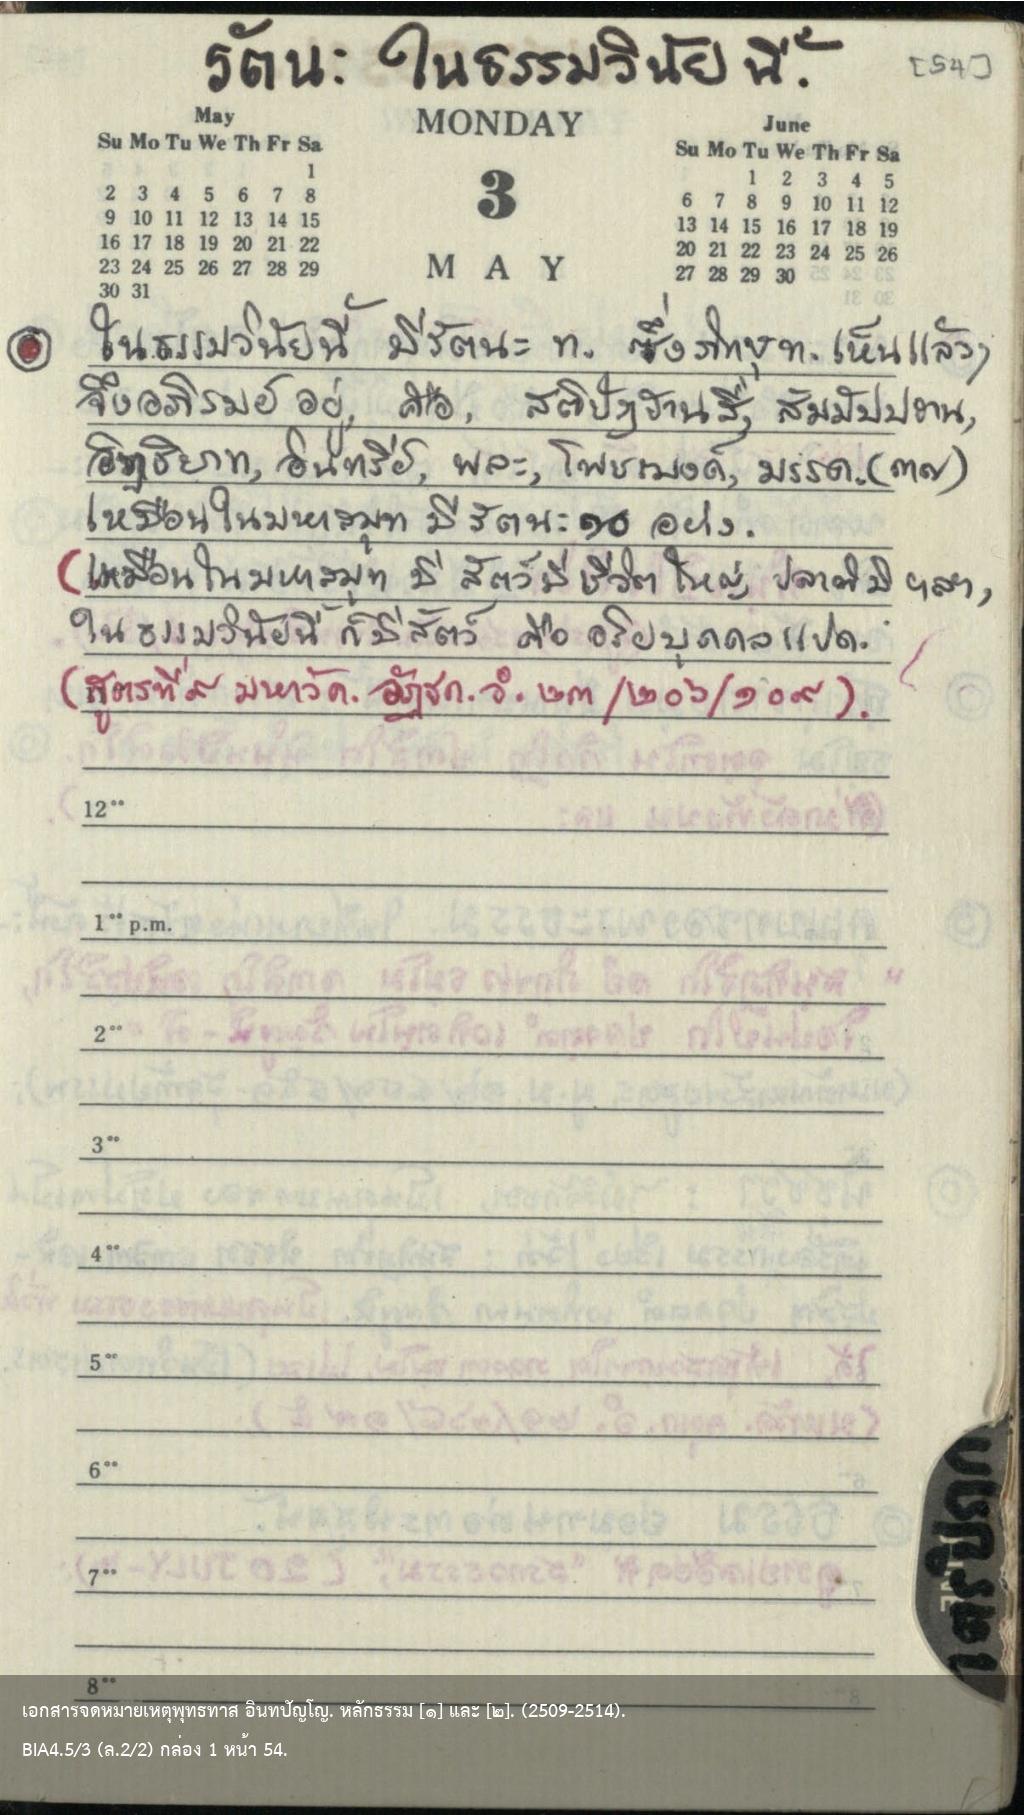 รัตนะ ในธรรมวินัยนี้.
[54]
May
Su Mo Tu We Th Fr Sa
1
2 3 4 5 6 7 8
9 10 11 12 13 14 15
16 17 18 19 20 21 22
23 24 25 26 27 28 29
30 31
MONDAY
3
MAY
June
Su Mo Tu We Th Fr Sa
1 2 3 4 5
6 7 8 9 10 11 12
13 14 15 16 17 18 19
20 21 22 23 24 25 26
27 28 29 30
ในธรรมวินัยนี้ มีรัตนะ ท. ซึ่งภิกษุ ท. เห็นแล้วๆ
จึงอภิรมย์อยู่, คือ, สติปัฏฐานสี่, สัมมัปปธาน,
อิทธิบาท, อินทรีย์, พละ, โพชฌงค์, มรรค.(๓๗)
เหมือนในมหาสมุท มีรัตนะ ๑๐ อย่าง.
(เหมือนในมหาสมุท มี สัตว์มีชีวิตใหญ่, ปลาติมิ ฯลฯ,
ในธรรมวินัยนี้ ก็มีสัตว์ คือ อริยบุคคลแปด.
(สูตรที่ ๙ มหาวัค. อัฏฐก. อํ. ๒๓/๒๐๖/๑๐๙).
12°°
1°° p.m.
2°°
3°°
4°°
5°°
6°°
7°°
8°°
เตรปิฎก
เอกสารจดหมายเหตุพุทธทาส อินทปัญโญ. หลักธรรม [๑] และ [๒]. (2509-2514).
BIA4.5/3 (ล.2/2) กล่อง 1 หน้า 54.